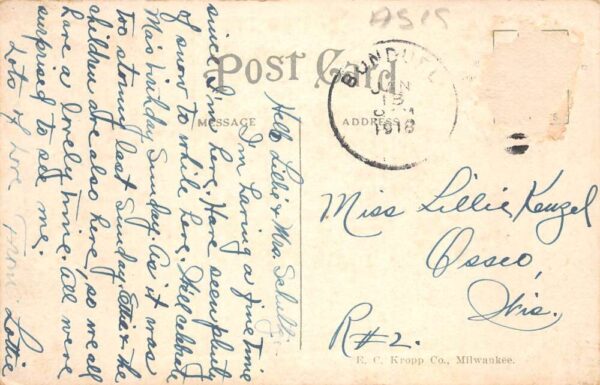 AS IS
Post Card
MESSAGE
ADDRESS
BONDUEL
JAN
13
1916
Hello Lillie & Mrs. Schultz:
I'm having a fine time
since I'm here. Have seen plenty
of snow to while here. Will celebrate
Ma's birthday Sunday. As it was
too stormy last Sunday. Elsie & the
children are also here, so we all
have a lovely time. All were
surprised to see me.
Lots of love From Lottie
Miss Lillie Kenzel
Osseo,
Wis.
R#2.
E. C. Kropp Co., Milwaukee.